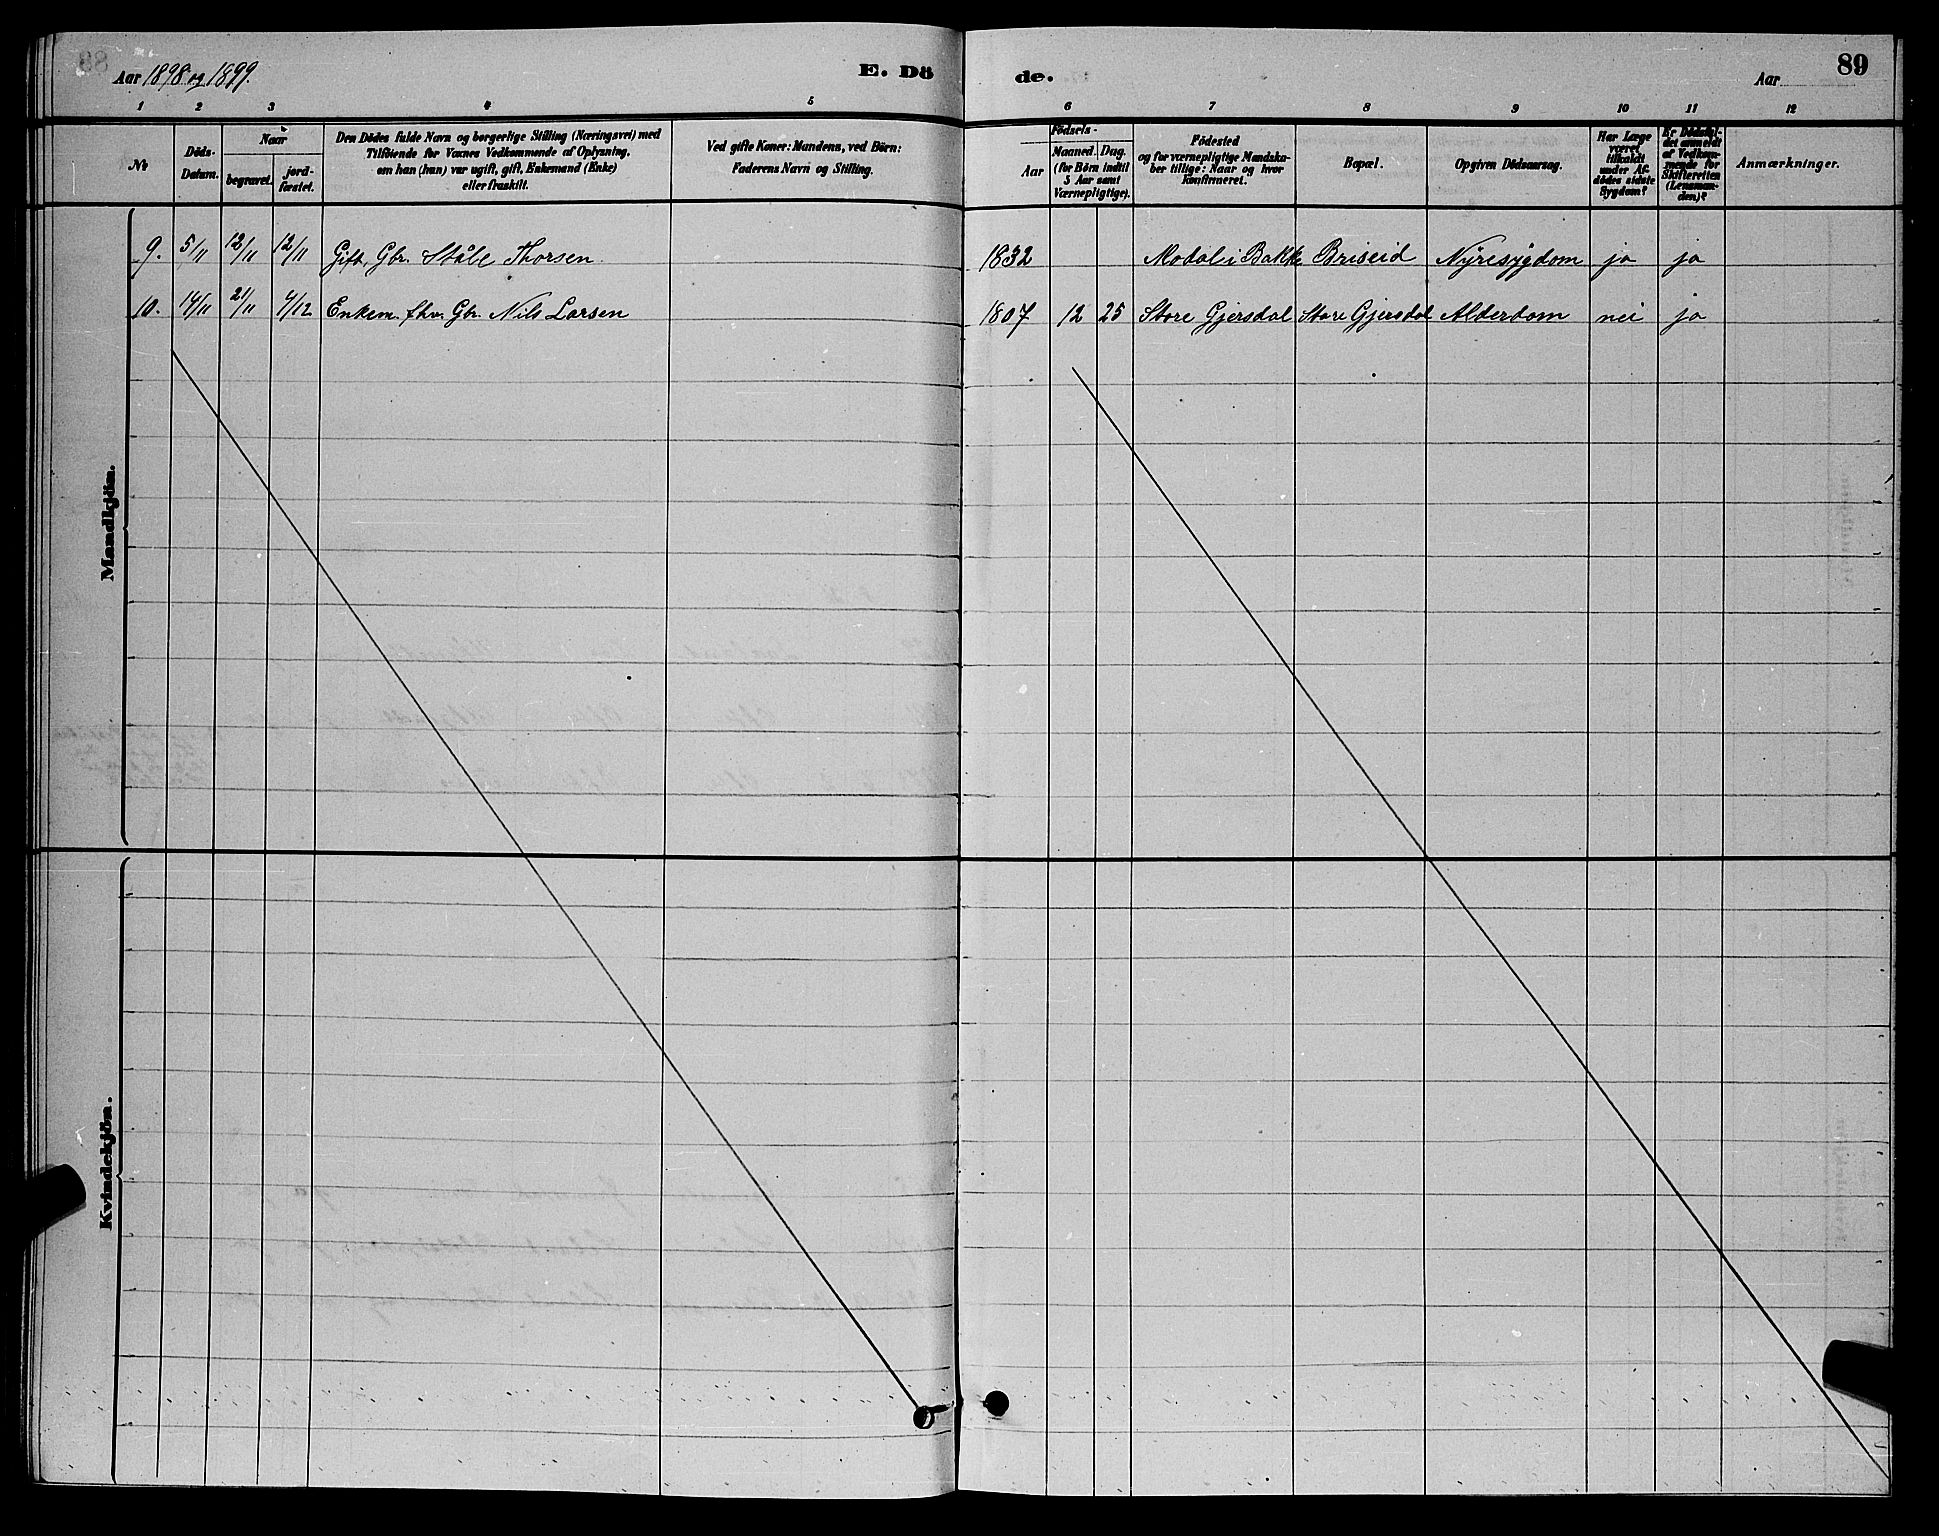 Aar 1898 og 1899.
E. Dö
de.
Aar
89
1 2 3 4 5 6 7 8 9 10 11 12
№
Döds-
Datum.
Naar
begravet.
jord-
fæstet.
Den Dödes fulde Navn og borgerlige Stilling (Næringsvei) med
Tilföiende for Voxnes Vedkommende af Oplysning,
om han (hun) var ugift, gift, Enkemand (Enke)
eller fraskilt.
Ved gifte Koner: Mandens, ved Börn:
Faderens Navn og Stilling.
Födsels-
Aar
Maaned. Dag.
(for Börn indtil
5 Aar samt
Værnepligtige).
Födested
og for værnepligtige Mandska-
ber tillige: Naar og hvor
konfirmeret.
Bopæl.
Opgiven Dödsaarsag.
Har Læge
været
tilkaldt
under Af-
dödes sidste
Sygdom?
Er Dödsfal-
det anmeldt
af Vedkom-
mende for
Skifteretten
(Lensman-
den)?
Anmærkninger.
Mandkjön.
9. 5/11 12/11 12/11 Gift, Gbr. Ståle Thorsen 1832 Modal i Bakke Briseid Nyresygdom ja ja
10. 14/11 21/11 4/12 Enkem. fhv. Gbr. Nils Larsen 1807 12 25 Store Gjersdal Store Gjersdal Alderdom nei ja
Kvindekjön.